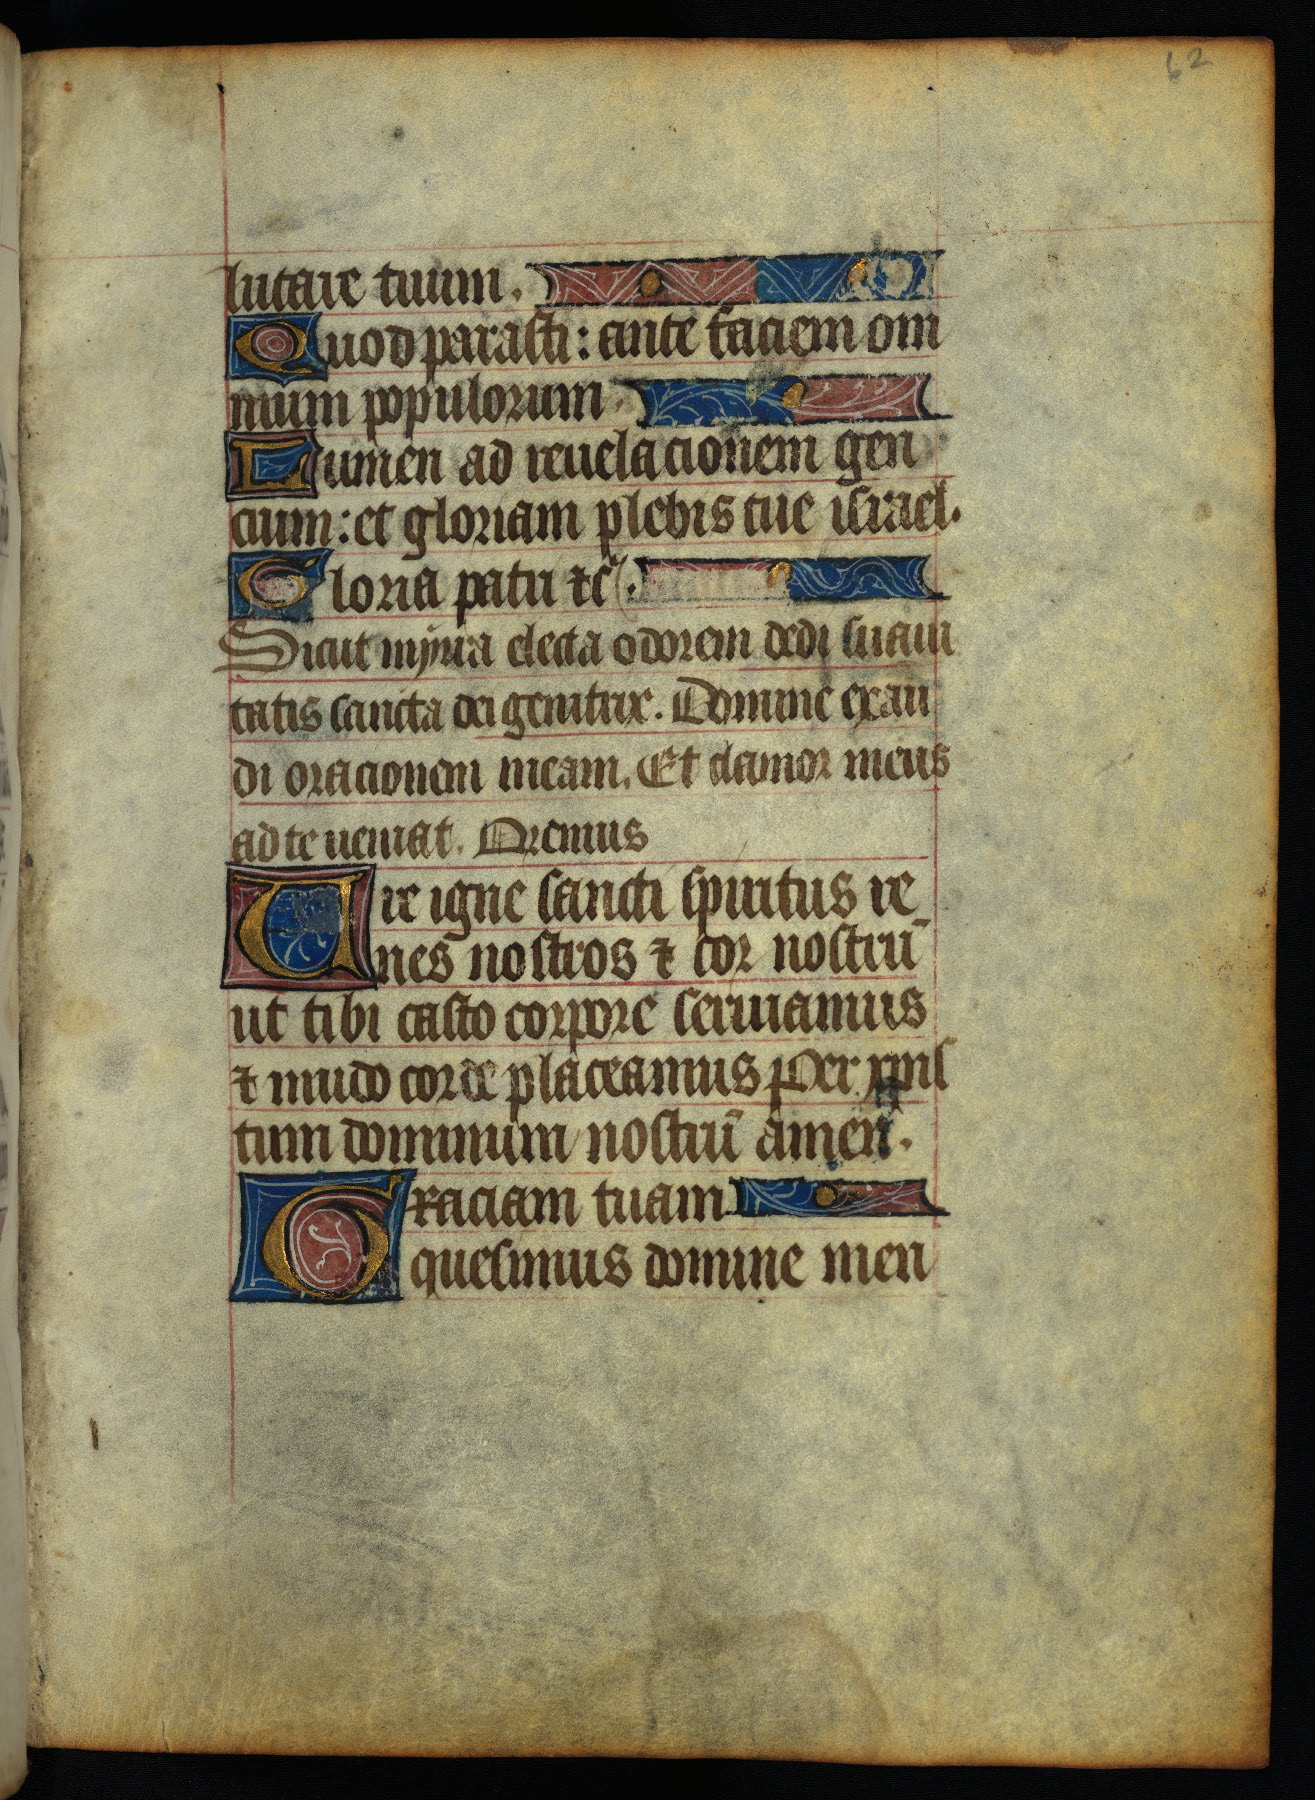 62
lutare tuum.
Quod parasti: ante faciem om
nium populorum.
Lumen ad reuelacionem gen
cium: et gloriam plebis tue israel.
Gloria patri ⁊c̃.
Sicut myrra electa odorem dedi suaui
tatis sancta dei genitrix. Domine exau
di oracionem meam. Et clamor meus
ad te ueniat. Oremus
Ure igne sancti spiritus re
nes nostros ⁊ cor nostrū
ut tibi casto corpore seruiamus
⁊ mūdo corde placeamus Per xpis
tum dominum nostrū amen.
Graciam tuam
quesimus domine men